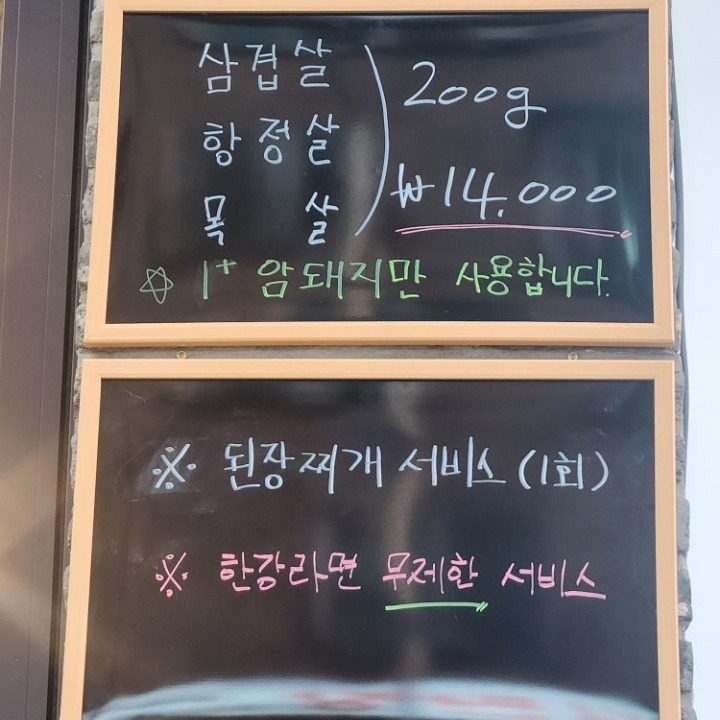 삼겹살
항정살
목 살
200g
₩14,000
☆ 1+ 암돼지만 사용합니다.
※ 된장찌개 서비스 (1회)
※ 한강라면 무제한 서비스